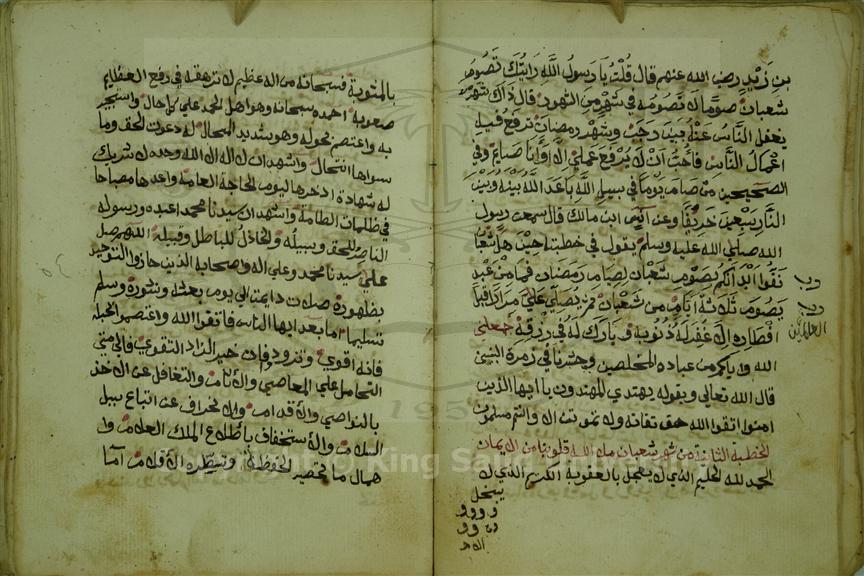 بن زَيْدٍ رضى الله عنهم قال قُلْتُ يَا رَسُولُ اللَّهِ رَايْتُكَ تَصُومُ
شعبان صومًا لَا تصُومُهُ في شَهْرٍ مِنَ الشهور قال ذَاكَ شهرٌ
يغفل النَّاسُ عَنْهُ بَينَ رَجَبَ وَشَهْرِ رمضان ترفع فيه
اعمال النَّاسِ فأحبُّ انْ لا يُرْفَعَ عَمَلِي إلَّا وَأَنَا صَايِمٌ وفي
الصحيحين من صام يَوْمًا في سبيل اللَّهِ بَاعَدَ اللَّهُ بَيْنَهُ وَبَيْنَ
النَّارِ سَبْعِينَ خَرِيْفًا وعن انس ابن مالك قال سمعت رسول
الله صلي الله عليه وسلم يقول في خطبته حِيْنَ
نَقُّوا ابْدَانكم بِصَوْمِ شَعْبَان لِصِيَامِ رَمَضَان فَمَا مِنْ عَبْدٍ
يَصُومُ ثَلَاثَةَ أيَّام من شَعْبَانَ ويُصَلِّي عَلَيَّ مِرَارًا قَبْلَ
افْطَارِهِ إلَّا غَفَرَ لَهُ ذُنُوبَهُ وَبَارَكَ لَهُ في رِزْقِهِ جعلني
الله واياكم من عباده المخلصين وحشرنا في زمرة النبي
قال الله تعالي وبقوله يهتدي المهتدون يا ايها الذين
امنوا اتقوا الله حق تقاته ولا تموتن الا وانتم مسلمون
الخطبة الثانية من شهر شعبان ملا الله قلوبنا من الايمان
الحمد لله الحليم الذي لا يعجل بالعقوبة الكريم الذي لا
يبخل
العالمين
بالمثوبة فسبحانه من اله عظيم لا ترهقه في رفع العظايم
صعوبة احمده سبحانه وهو اهل الحمد علي كل حال واستجير
به واعتصم بحوله وهو شديد المحال له دعوت الحق وما
سواها انتحال واشهد ان لا اله الا الله وحده لا شريك
له شهادة ادخرها ليوم الحاجة العامة واعدها مصباحا
في ظلمات الطامة واشهد ان سيدنا محمد اعبده ورسوله
الناصر للحق وسبيله والخاذل للباطل وقبيله اللهم صل
علي سيدنا محمد وعلي اله واصحابه الذين حازوا التوحيد
بظهوره صلات دايمة الي يوم بعثه ونشوره وسلم
تسليما اما بعد ايها الناس فاتقوا الله واعتصموا بحبله
فانه اقوي وتزودوا فان خير الزاد التقوي فالي متي
التحامل علي المعاصي والاثام والتغافل عن الاخذ
بالنواصي والاقدام والانحراف عن اتباع سبيل
السلام والاستخفاف باطلاع الملك العلام وا
همال ما تحصيه الحفظة وتسطره الاقلام اما